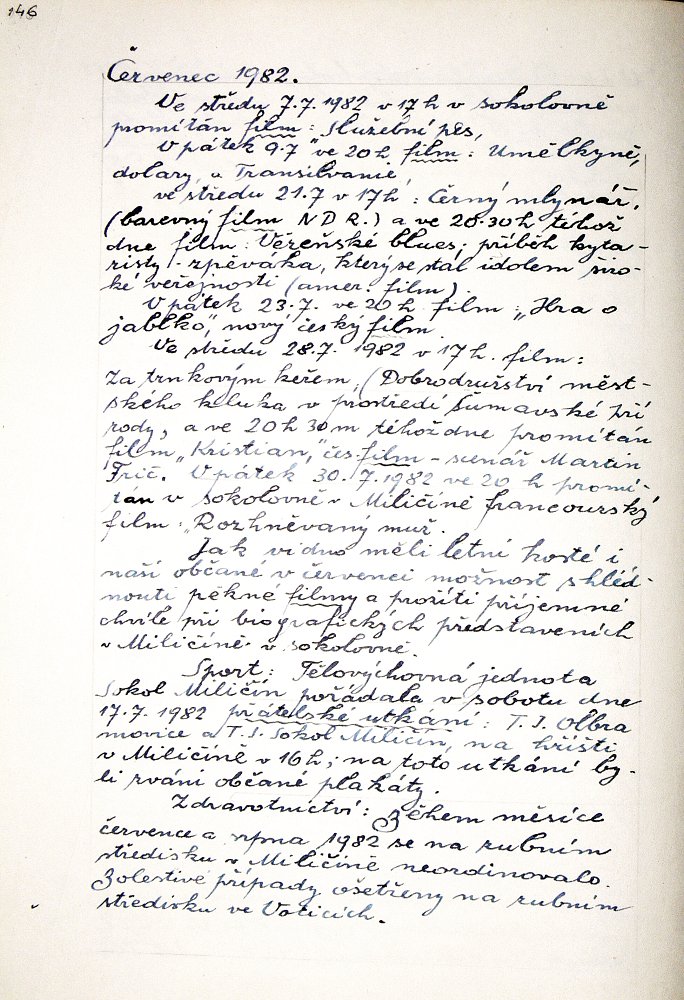 146
Červenec 1982.
Ve středu 7.7.1982 v 17 h v sokolovně
promítán film: Služební pes,
V pátek 9.7 ve 20 h, film: Umělkyně,
dolary, a Transilvanie,
ve středu 21.7 v 17 h: Černý mlynář,
(barevný film NDR.) a ve 20.30 h téhož
dne film: Vězeňské blues; příběh kyta-
risty-zpěváka, který se stal idolem širo-
ké veřejnosti (amer. film).
V pátek 23.7. ve 20 h. film: „Hra o
jablko", nový český film
Ve středu 28.7. 1982 v 17 h. film:
Za trnkovým keřem, (Dobrodružství měst-
ského kluka v prostředí Šumavské pří
rody, a ve 20 h 30 m téhož dne promítán
film „Kristian," čes. film - scenář Martin
Frič. V pátek 30.7.1982 ve 20 h promí-
tán v sokolovně v Miličíně francourský
film: „Rozhněvaný muž.
Jak vidno měli letní hosté i
naši občané v červenci možnost shléd-
nouti pěkné filmy a prožíti příjemné
chvíle při biografických představeních
v Miličíně v sokolovně.
Sport: Tělovýchovná jednota
Sokol Miličín pořádala v sobotu dne
17.7. 1982 přátelské utkání: T.J. Olbra
movice a T.J. Sokol Miličín, na hřišti
v Miličíně v 16 h; na toto utkání by-
li zváni občané plakáty.
Zdravotnictví: Během měsíce
července a srpna 1982 se na zubním
středisku v Miličíně neordinovalo.
Bolestivé případy ošetřeny na zubním
středisku ve Voticích.